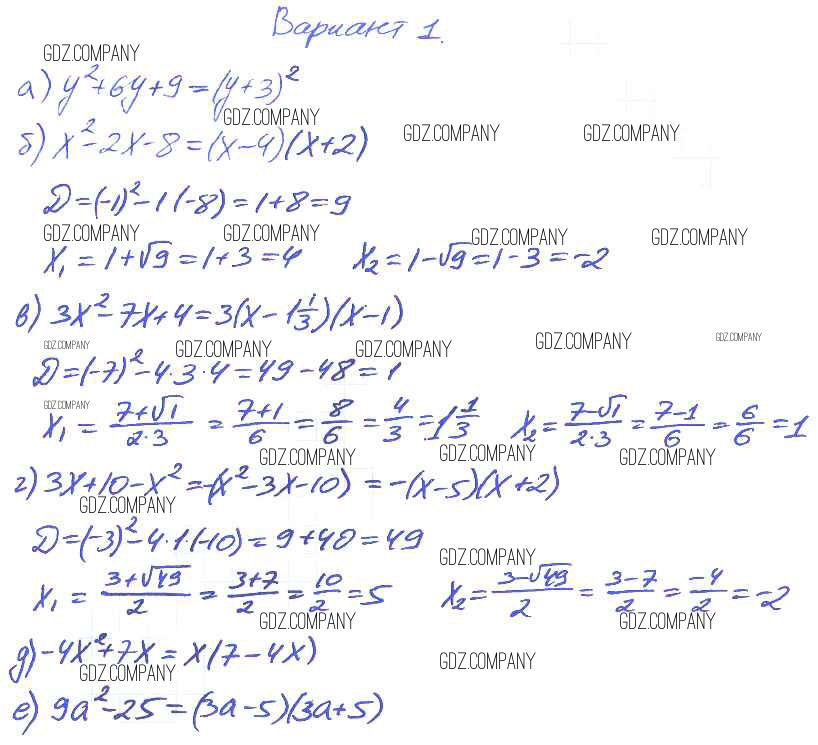 Вариант 1.
GDZ.COMPANY
а) y²+6y+9=(y+3)²
GDZ.COMPANY GDZ.COMPANY GDZ.COMPANY
б) x²-2x-8=(x-4)(x+2)
D=(-1)²-1(-8)=1+8=9
GDZ.COMPANY GDZ.COMPANY GDZ.COMPANY GDZ.COMPANY
x₁=1+√9=1+3=4 x₂=1-√9=1-3=-2
в) 3x²-7x+4=3(x-1 1/3)(x-1)
GDZ.COMPANY GDZ.COMPANY GDZ.COMPANY GDZ.COMPANY GDZ.COMPANY
D=(-7)²-4·3·4=49-48=1
GDZ.COMPANY
x₁=(7+√1)/(2·3)=(7+1)/6=8/6=4/3=1 1/3 x₂=(7-√1)/(2·3)=(7-1)/6=6/6=1
GDZ.COMPANY GDZ.COMPANY GDZ.COMPANY
г) 3x+10-x²=-(x²-3x-10)=-(x-5)(x+2)
GDZ.COMPANY
D=(-3)²-4·1·(-10)=9+40=49
GDZ.COMPANY
x₁=(3+√49)/2=(3+7)/2=10/2=5 x₂=(3-√49)/2=(3-7)/2=-4/2=-2
GDZ.COMPANY GDZ.COMPANY
д) -4x²+7x=x(7-4x)
GDZ.COMPANY GDZ.COMPANY
е) 9a²-25=(3a-5)(3a+5)